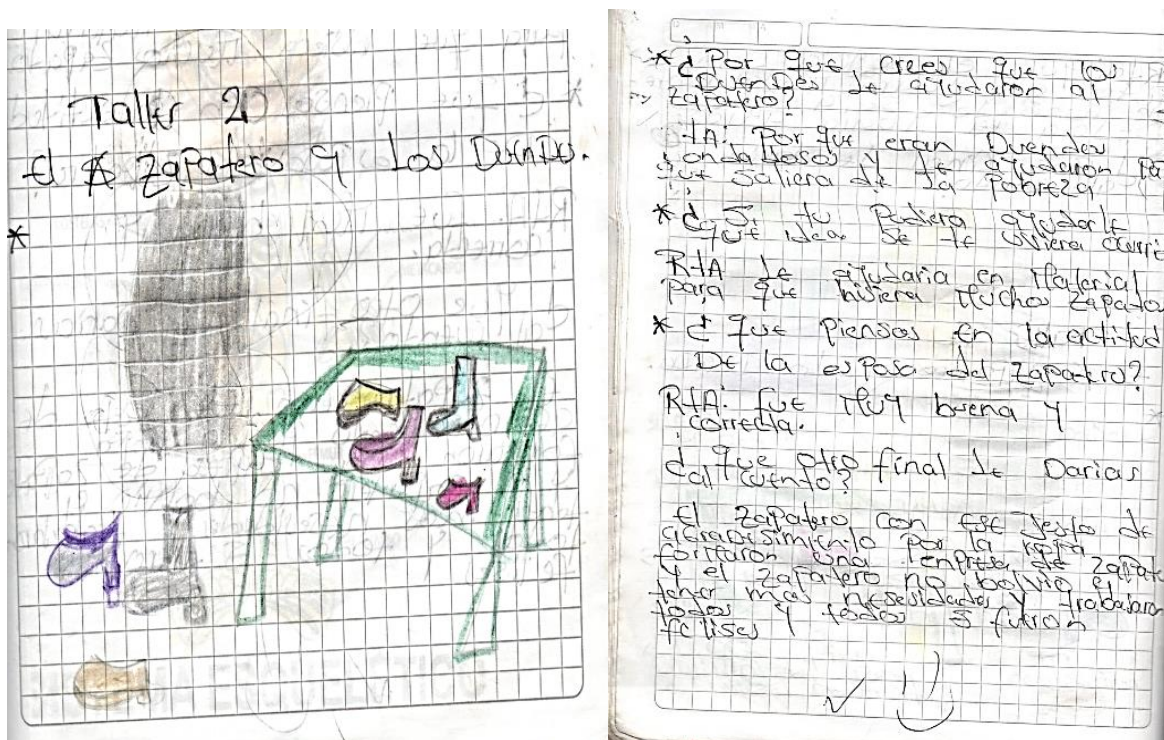 Taller 2
El Zapatero y Los Duendes.
*
* ¿Por que crees que los
Duendes le ayudaron al
zapatero?
RTA: Por que eran Duendes
ondadosos y le ayudaron Pa
que saliera de la Pobreza
* ¿Si tu Pudiera ayudarle
que ideas se te uviera ocurri
RTA le ayudaria en Material
para que hisiera Muchos zapatos
* ¿que Piensas en la actitud
De la esposa del zapatero?
RTA: fue Muy buena y
correcta.
¿que otro final le Darias
al cuento?
El zapatero con ese gesto de
agradesimiento por la ropa
formaron una empresa de zapato
y el zapatero no bolvio a
tener mas nesesidades y trabajaron
todos y todos fueron
felises